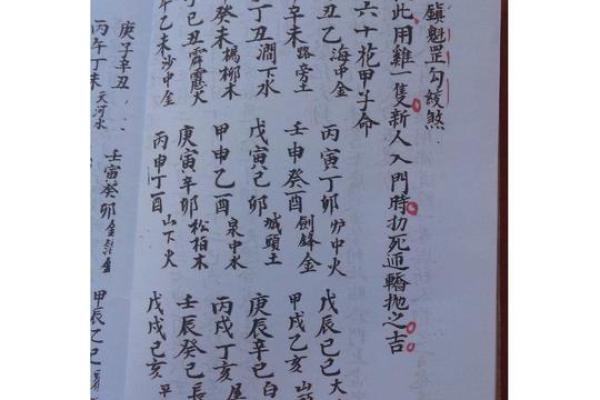 鎮魁罡勾絞煞
此用雞一隻新人入門時扐死 轎拋之吉
六十花甲子命
丑乙 海中金 丙寅丁卯 炉中火 戊辰己巳 大
辛未 路旁土 壬申癸酉 劍鋒金 甲戌乙亥 山
丁丑 澗下水 戊寅己卯 城頭土 庚辰辛巳 白
癸未 楊柳木 甲申乙酉 泉中水 丙戌丁亥 屋
己丑 霹靂火 庚寅辛卯 松柏木 壬辰癸巳 長
乙未 沙中金 丙申丁酉 山下火 戊戌己亥
庚子辛丑 壬寅癸卯 金 金 甲辰乙巳
丙午丁未 天河水